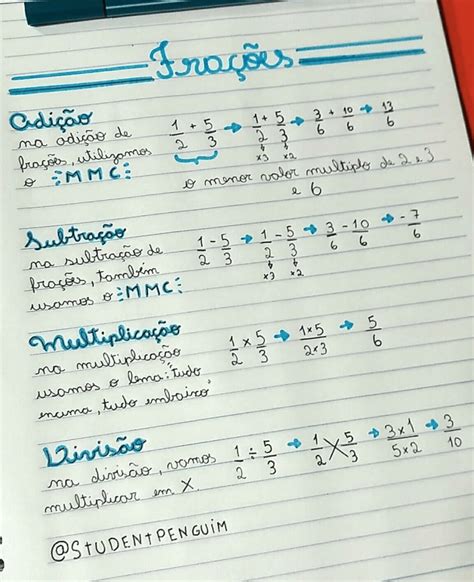 Frações
Adição
na adição de
frações, utilizamos
o MMC:
1/2 + 5/3 → 1/2 + 5/3 → 3/6 + 10/6 → 13/6
x3 x2
o menor valor multiplo de 2 e 3
e 6
Subtração
na subtração de
frações, também
usamos o MMC:
1/2 - 5/3 → 1/2 - 5/3 → 3/6 - 10/6 → -7/6
x3 x2
Multiplicação
na multiplicação
usamos o lema: "tudo
encima, tudo embaixo"
1/2 x 5/3 → 1x5/2x3 → 5/6
Divisão
na divisão, vamos
multiplicar em X.
1/2 ÷ 5/3 → 1/2 X 5/3 → 3x1/5x2 → 3/10
@STUDENTPENGUIM